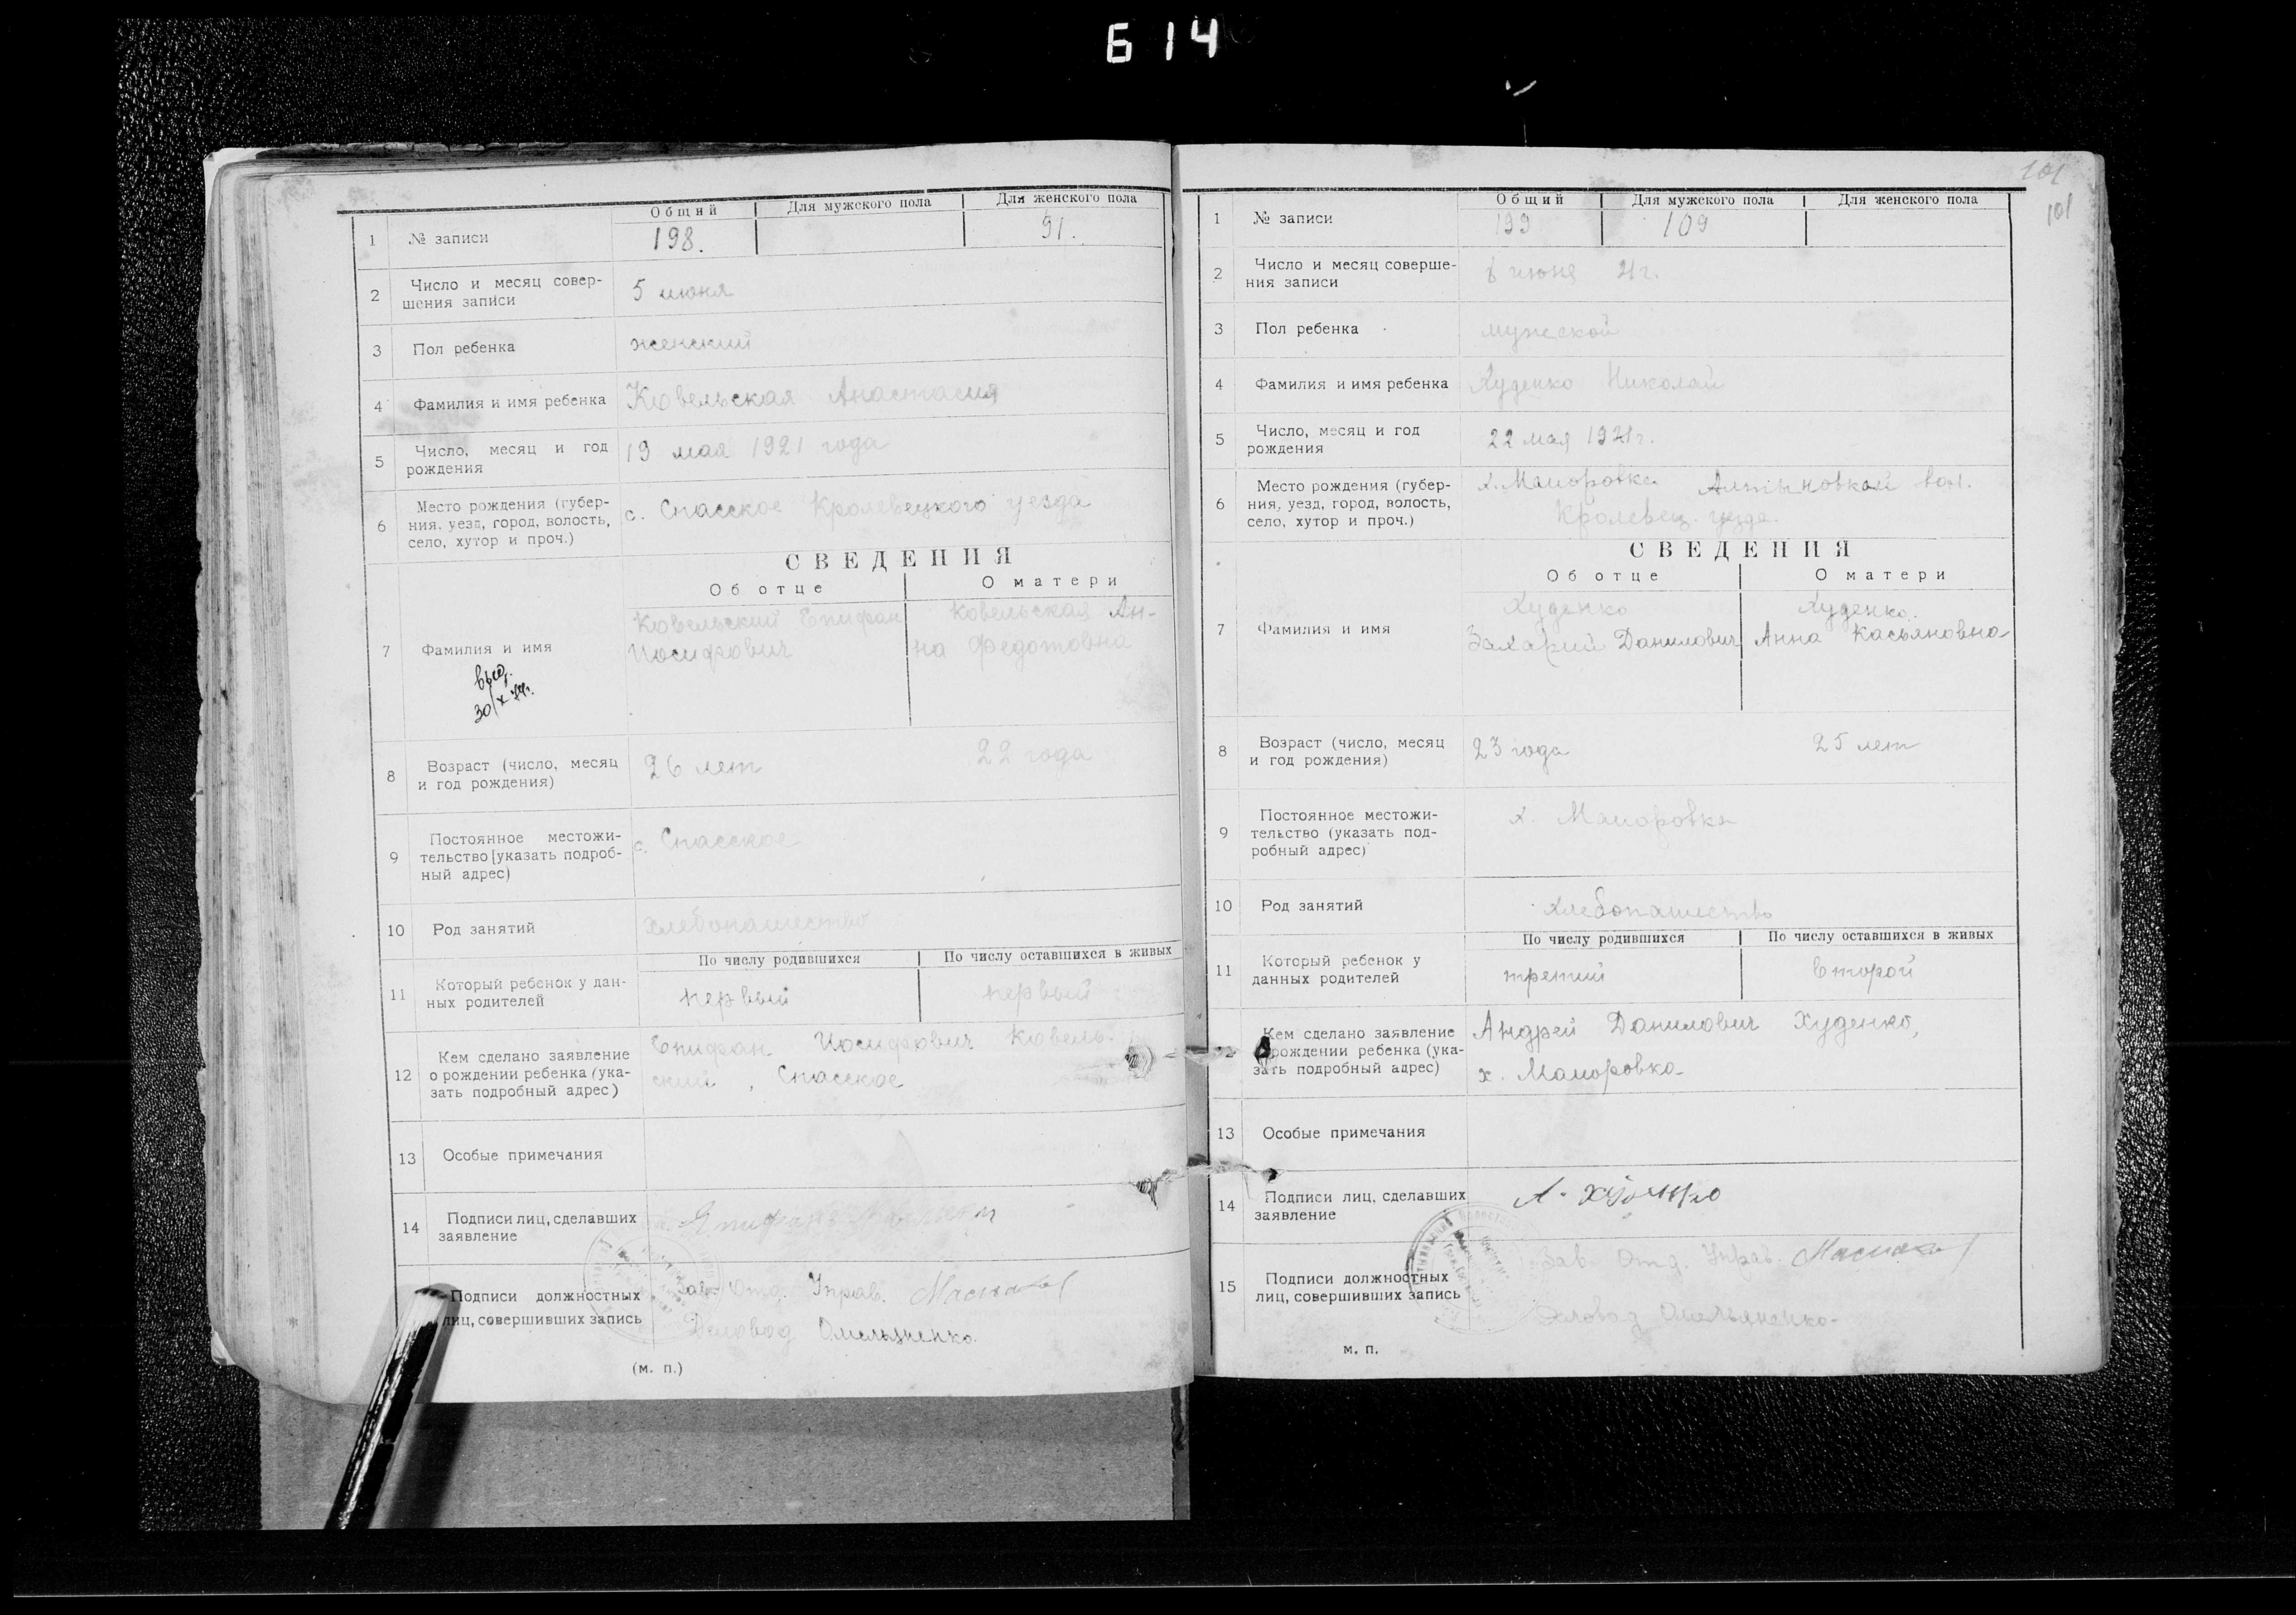 Б 14
Общий Для мужского пола Для женского пола
1 № записи 198. 91.
2 Число и месяц совер-
шения записи
5 июня
3 Пол ребенка женский
4 Фамилия и имя ребенка Ковельская Анастасия
5 Число, месяц и год
рождения
19 мая 1921 года
6 Место рождения (губер-
ния, уезд, город, волость,
село, хутор и проч.)
с. Спасское Кролевецкого уезда
СВЕДЕНИЯ
Об отце О матери
7 Фамилия и имя
Ковельский Епифан
Иосифович
Ковельская Ан-
на Федотовна
8 Возраст (число, месяц
и год рождения)
26 лет 22 года
9 Постоянное местожи-
тельство [указать подроб-
ный адрес)
с. Спасское
10 Род занятий хлебопашество
По числу родившихся По числу оставшихся в живых
11 Который ребенок у дан-
ных родителей
первый первый
12 Кем сделано заявление
о рождении ребенка (ука-
зать подробный адрес)
Епифан Иосифович Ковель-
ский, Спасское
13 Особые примечания
14 Подписи лиц, сделавших
заявление
Подписи должностных
лиц, совершивших запись
Зав. Отд. Управ.
Деловод Омельяненко.
(м. п.)
101
101
Общий Для мужского пола Для женского пола
1 № записи 199 109
2 Число и месяц соверше-
ния записи
6 июня 21 г.
3 Пол ребенка мужеской
4 Фамилия и имя ребенка Худенко Николай
5 Число, месяц и год
рождения
22 мая 1921 г.
6 Место рождения (губер-
ния, уезд, город, волость,
село, хутор и проч.)
х. Маиоровка Алтыновкой вол.
Кролевец. уезда.
СВЕДЕНИЯ
Об отце О матери
7 Фамилия и имя
Худенко
Захарий Данилович
Худенко.
Анна Касьяновна
8 Возраст (число, месяц
и год рождения)
23 года 25 лет
9 Постоянное местожи-
тельство (указать под-
робный адрес)
х. Маиоровка
10 Род занятий хлебопашество
По числу родившихся По числу оставшихся в живых
11 Который ребенок у
данных родителей
третий второй
Кем сделано заявление
рождении ребенка (ука-
зать подробный адрес)
Андрей Данилович Худенко,
х. Маиоровка
13 Особые примечания
14 Подписи лиц, сделавших
заявление
15 Подписи должностных
лиц, совершивших запись
Зав. Отд. Управ.
Деловод Омельяненко.
м. п.